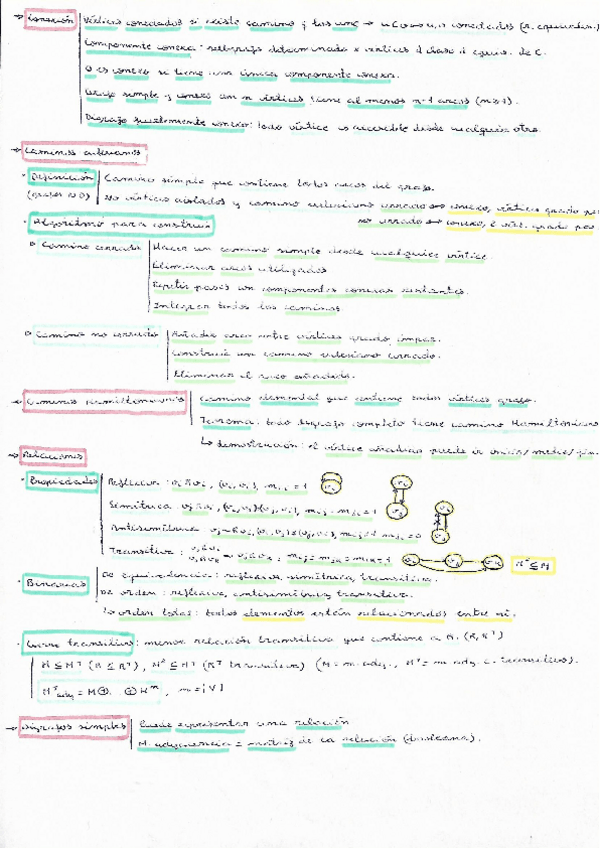 → Conexión | Vértices conectados si existe camino y los une → u C v ↔ u, v conectados (R. equivalen.)
Componente conexa: subgrafo determinado x vértices d clase d equiv. de C.
G es conexo si tiene una única componente conexa.
Grafo simple y conexo con n vértices tiene al menos n-1 arcos (n≥1).
Digrafo fuertemente conexo: todo vértice es accesible desde cualquier otro.
→ Caminos eulerianos
· Definición | Camino simple que contiene todos arcos del grafo.
(grafos ND) | No vértices aislados y camino euleriano cerrado ↔ conexo, vértices grado par
no cerrado ↔ conexo, 2 vért. grado
· Algoritmo para construir
Camino cerrado | Hacer un camino simple desde cualquier vértice.
Eliminar arcos utilizados
Repetir pasos con componentes conexas restantes.
Integrar todos los caminos
Camino no cerrado | Añadir arco entre vértices grado impar.
Construir un camino euleriano cerrado.
Eliminar el arco añadido.
→ Caminos hamiltonianos | Camino elemental que contiene todos vértices grafo.
Teorema: todo digrafo completo tiene camino Hamiltoniano
↳ demostración: el vértice añadido puede ir inicio/medio/fin.
→ Relaciones
· Propiedades | Reflexiva:
Simétrica:
Antisimétrica:
Transitiva:
R² ⊆ R
· Binarias | De equivalencia: reflexiva, simétrica, transitiva.
De orden: reflexiva, antisimétrica, transitiva.
↳ orden total: todos elementos están relacionados entre sí.
· Cierre transitivo: menor relación transitiva que contiene a R. (R, R⁺)
M ≤ M⁺ (R ⊆ R⁺), (R⁺ transitiva) (M = m. adj., M⁺ = m. adj. c. transitivo).
n = |V|
→ Digrafos simples | Puede representar una relación
M. adyacencia = matriz de la relación (booleana).